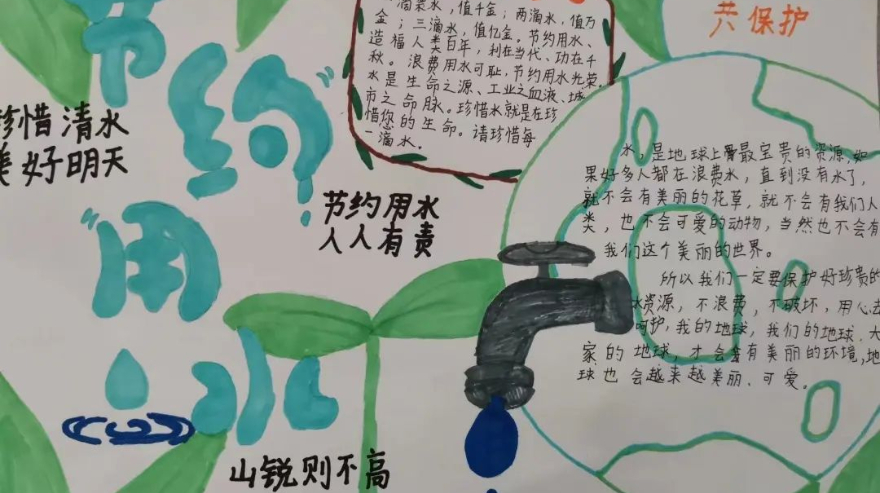 节
约
用
水
珍惜清水
美好明天
滴滚水,值千金;两滴水,值万
金;三滴水,值亿金。节约用水、
造福人类百年,利在当代、功在千
秋。浪费用水可耻,节约用水光荣,
水是生命之源、工业之血液、城
市之命脉。珍惜水就是在珍
惜您的生命。请珍惜每
一滴水。
共保护
节约用水
人人有责
水,是地球上最宝贵的资源,如
果好多人都在浪费水,直到没有水了,
就不会有美丽的花草,就不会有我们人
类,也不会可爱的动物,当然也不会有
我们这个美丽的世界。
所以我们一定要保护好珍贵的
水资源,不浪费,不破坏,用心去
呵护,我的地球,我们的地球、大
家的地球,才会有美丽的环境,地
球也会越来越美丽、可爱。
山锐则不高